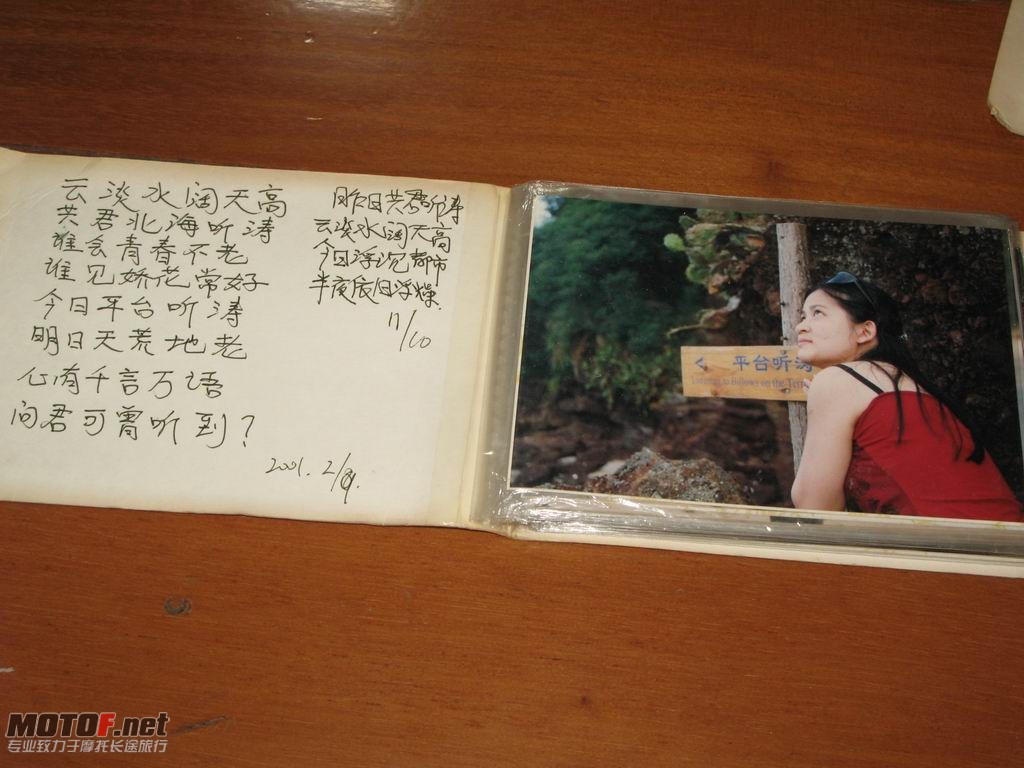 云淡水阔天高
共君北海听涛
谁会青春不老
谁见娇花常好
今日平台听涛
明日天荒地老
心有千言万语
问君可曾听到?
2001. 2/
昨日共君听涛
云淡水阔天高
今日浮沉都市
半夜依旧浮燥.
11/10
< 平台听涛
Listening to Billows on the Terr
MOTOF.net
专业致力于摩托长途旅行